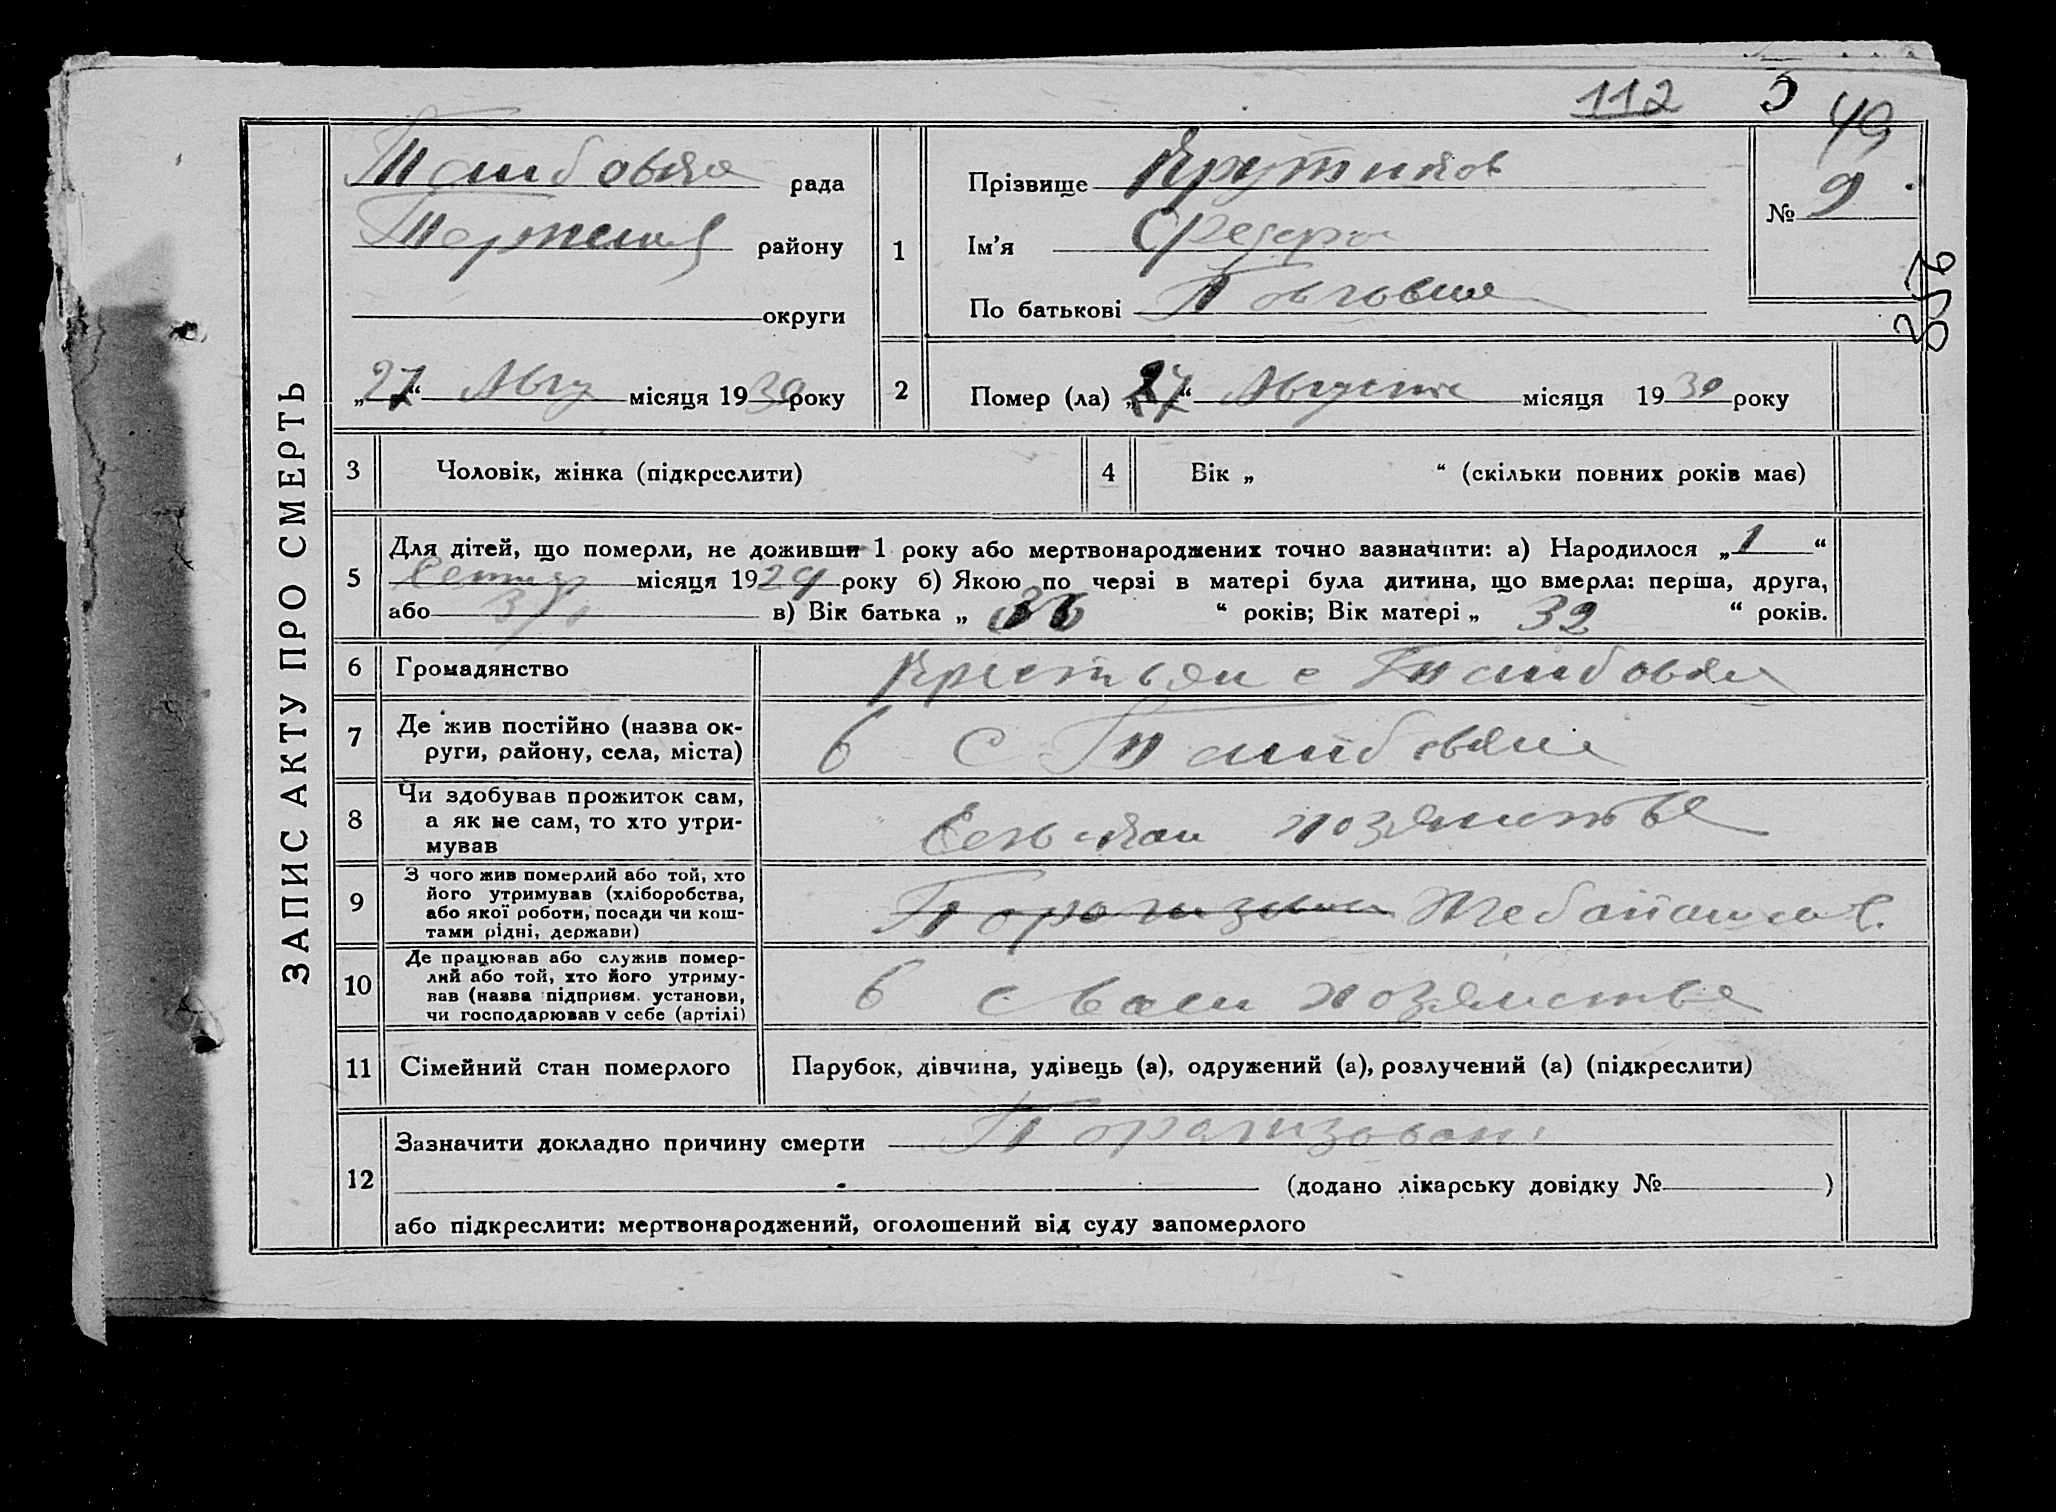 112 5 49
ЗАПИС АКТУ ПРО СМЕРТЬ
Тамбовка рада
району
округи
„27“ Авгу місяця 1930 року
1
Прізвище Крутиков
Ім'я
По батькові
№ 9
356
2
Помер (ла) „27“ Августа місяця 1930 року
3 Чоловік, жінка (підкреслити)
4 Вік „ “ (скільки повних років має)
5 Для дітей, що померли, не доживши 1 року або мертвонароджених точно зазначити: а) Народилося „1“
місяця 1929 року б) Якою по черзі в матері була дитина, що вмерла: перша, друга,
або в) Вік батька „36“ років; Вік матері „32“ років.
6 Громадянство Крестьян с Тамбовка
7 Де жив постійно (назва ок-
руги, району, села, міста) в с Тамбовки
8 Чи здобував прожиток сам,
а як не сам, то хто утри-
мував хозяиства
9 З чого жив померлий або той, хто
його утримував (хліборобства,
або якої роботи, посади чи кош-
тами рідні, держави)
10 Де працював або служив помер-
лий або той, хто його утриму-
вав (назва підприєм. установи,
чи господарював у себе (артілі) в своем хозяистве
11 Сімейний стан померлого Парубок, дівчина, удівець (а), одружений (а), розлучений (а) (підкреслити)
12 Зазначити докладно причину смерти
(додано лікарську довідку № )
або підкреслити: мертвонароджений, оголошений від суду запомерлого